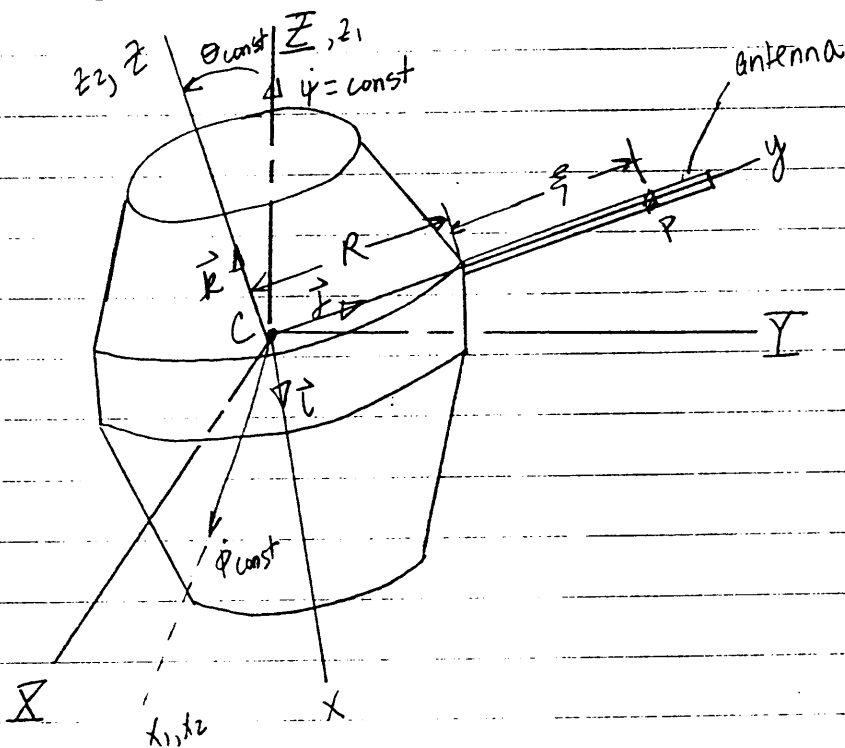 z2, z
θ const
Z, z1
ψ̇ = const
antenna
y
ξ
P
R
k⃗
j⃗
C
Y
i⃗
φ̇ const
X
x1, x2
x